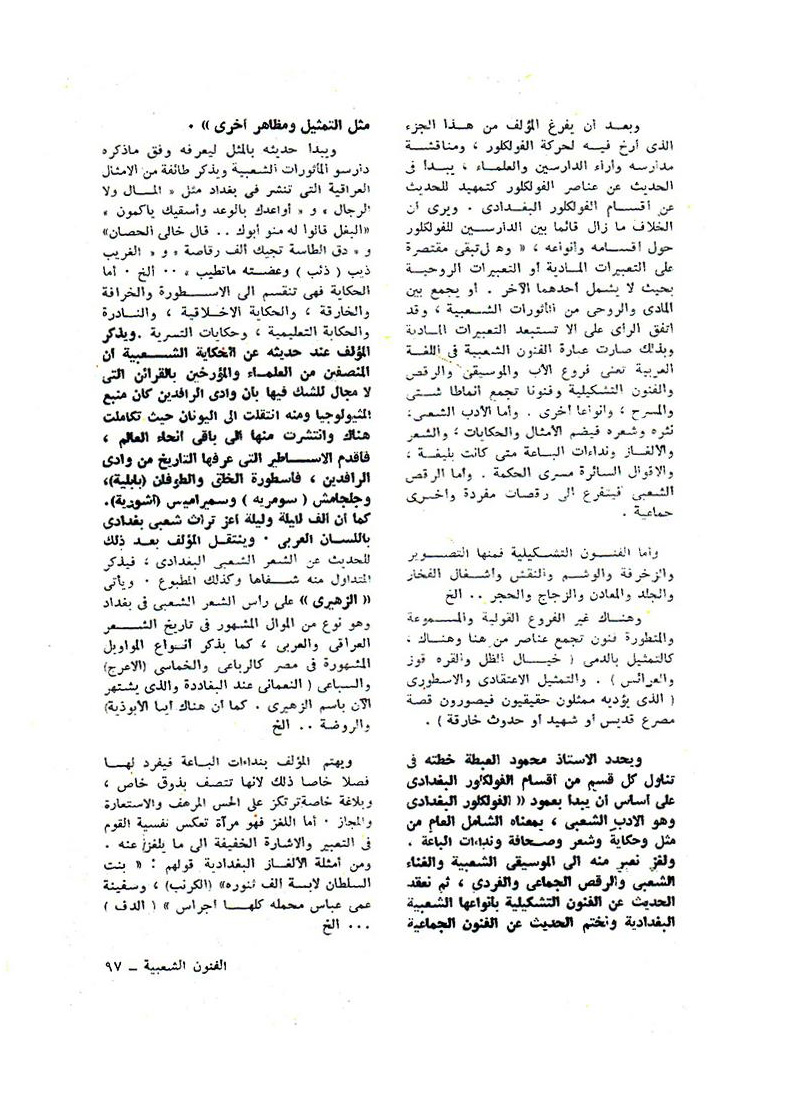 وبعد أن يفرغ المؤلف من هذا الجزء
الذى أرخ فيه لحركة الفولكلور ، ومناقشة
مدارسه وآراء الدارسين والعلماء ، يبدأ فى
الحديث عن عناصر الفولكلور كتمهيد للحديث
عن أقسام الفولكلور البغدادى . ويرى أن
الخلاف ما زال قائما بين الدارسين للفولكلور
حول أقسامه وأنواعه ، « وهل تبقى مقتصرة
على التعبيرات المادية أو التعبيرات الروحية
بحيث لا يشمل أحدهما الآخر . أو يجمع بين
المادى والروحى من المأثورات الشعبية ، وقد
اتفق الرأى على ألا تستبعد التعبيرات المادية
وبذلك صارت عبارة الفنون الشعبية فى اللغة
العربية تعنى فروع الأدب والموسيقى والرقص
والفنون التشكيلية وفنونا تجمع أنماطا شتى
والمسرح ، وأنواعا أخرى . وأما الأدب الشعبى:
نثره وشعره فيضم الأمثال والحكايات ، والشعر
والألغاز ونداءات الباعة متى كانت بليغة ،
والأقوال السائرة مسرى الحكمة . وأما الرقص
الشعبى فيتفرع الى رقصات مفردة وأخرى
جماعية .
وأما الفنون التشكيلية فمنها التصوير
والزخرفة والوشم والنقش وأشغال الفخار
والجلد والمعادن والزجاج والحجر .. الخ
وهناك غير الفروع القولية والمسموعة
والمنظورة فنون تجمع عناصر من هنا وهناك ،
كالتمثيل بالدمى ( خيال الظل والقره قوز
والعرائس ) . والتمثيل الاعتقادى والاسطورى
( الذى يؤديه ممثلون حقيقيون فيصورون قصة
مصرع قديس أو شهيد أو حدوث خارقة ) .
ويحدد الاستاذ محمود العبطة خطته فى
تناول كل قسم من أقسام الفولكلور البغدادى
على أساس أن يبدأ بعمود « الفولكلور البغدادى
وهو الادب الشعبى ، بمعناه الشامل العام من
مثل وحكاية وشعر وصحافة ونداءات الباعة .
ولغز نعبر منه الى الموسيقى الشعبية والغناء
الشعبى والرقص الجماعى والفردى ، ثم نعقد
الحديث عن الفنون التشكيلية بأنواعها الشعبية
البغدادية ونختم الحديث عن الفنون الجماعية
مثل التمثيل ومظاهر أخرى » .
ويبدأ حديثه بالمثل ليعرفه وفق ماذكره
دارسو المأثورات الشعبية ويذكر طائفة من الامثال
العراقية التى تنشر فى بغداد مثل « المال ولا
الرجال » و « أواعدك بالوعد وأسقيك ياكمون »
«البغل قالوا له منو أبوك .. قال خالى الحصان»
و « دق الطاسة تجيك ألف رقاصة » و « الغريب
ذيب ( ذئب ) وعضته ماتطيب » .. الخ . أما
الحكاية فهى تنقسم الى الاسطورة والخرافة
والخارقة ، والحكاية الاخلاقية ، والنادرة
والحكاية التعليمية ، وحكايات التسرية . ويذكر
المؤلف عند حديثه عن الحكاية الشعبية أن
المنصفين من العلماء والمؤرخين بالقرائن التى
لا مجال للشك فيها بأن وادى الرافدين كان منبع
المثيولوجيا ومنه انتقلت الى اليونان حيث تكاملت
هناك وانتشرت منها الى باقى أنحاء العالم ،
فأقدم الاساطير التى عرفها التاريخ من وادى
الرافدين ، فأسطورة الخلق والطوفان (بابلية)،
وجلجامش ( سومريه ) وسميراميس (آشورية).
كما أن ألف ليلة وليلة أعز تراث شعبى بغدادى
باللسان العربى . وينتقل المؤلف بعد ذلك
للحديث عن الشعر الشعبى البغدادى ، فيذكر
المتداول منه شفاها وكذلك المطبوع . ويأتى
« الزهيرى » على رأس الشعر الشعبى فى بغداد
وهو نوع من الموال المشهور فى تاريخ الشعر
العراقى والعربى ، كما يذكر أنواع المواويل
المشهورة فى مصر كالرباعى والخماسى (الاعرج)
والسباعى ( النعمانى عند البغاددة والذى يشتهر
الآن باسم الزهيرى . كما أن هناك أيضا الأبوذية)
والروضة .. الخ
ويهتم المؤلف بنداءات الباعة فيفرد لها
فصلا خاصا ذلك لأنها تتصف بذوق خاص ،
وبلاغة خاصة ترتكز على الحس المرهف والاستعارة
والمجاز . أما اللغز فهو مرآة تعكس نفسية القوم
فى التعبير والاشارة الخفيفة الى ما يلغز عنه .
ومن أمثلة الألغاز البغدادية قولهم : « بنت
السلطان لابسة ألف تنوره» (الكرنب) ، وسفينة
عمى عباس محمله كلها أجراس » ( الدف )
... الخ
الفنون الشعبية ــ ٩٧